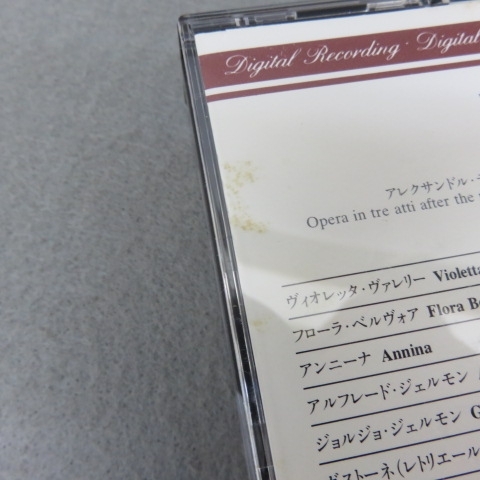 Digital Recording · Digital
アレクサンドル・
Opera in tre atti after the
ヴィオレッタ・ヴァレリー Violetta
フローラ・ベルヴォア Flora
アンニーナ Annina
アルフレード・ジェルモン
ジョルジョ・ジェルモン G
ガストーネ(レトリエール